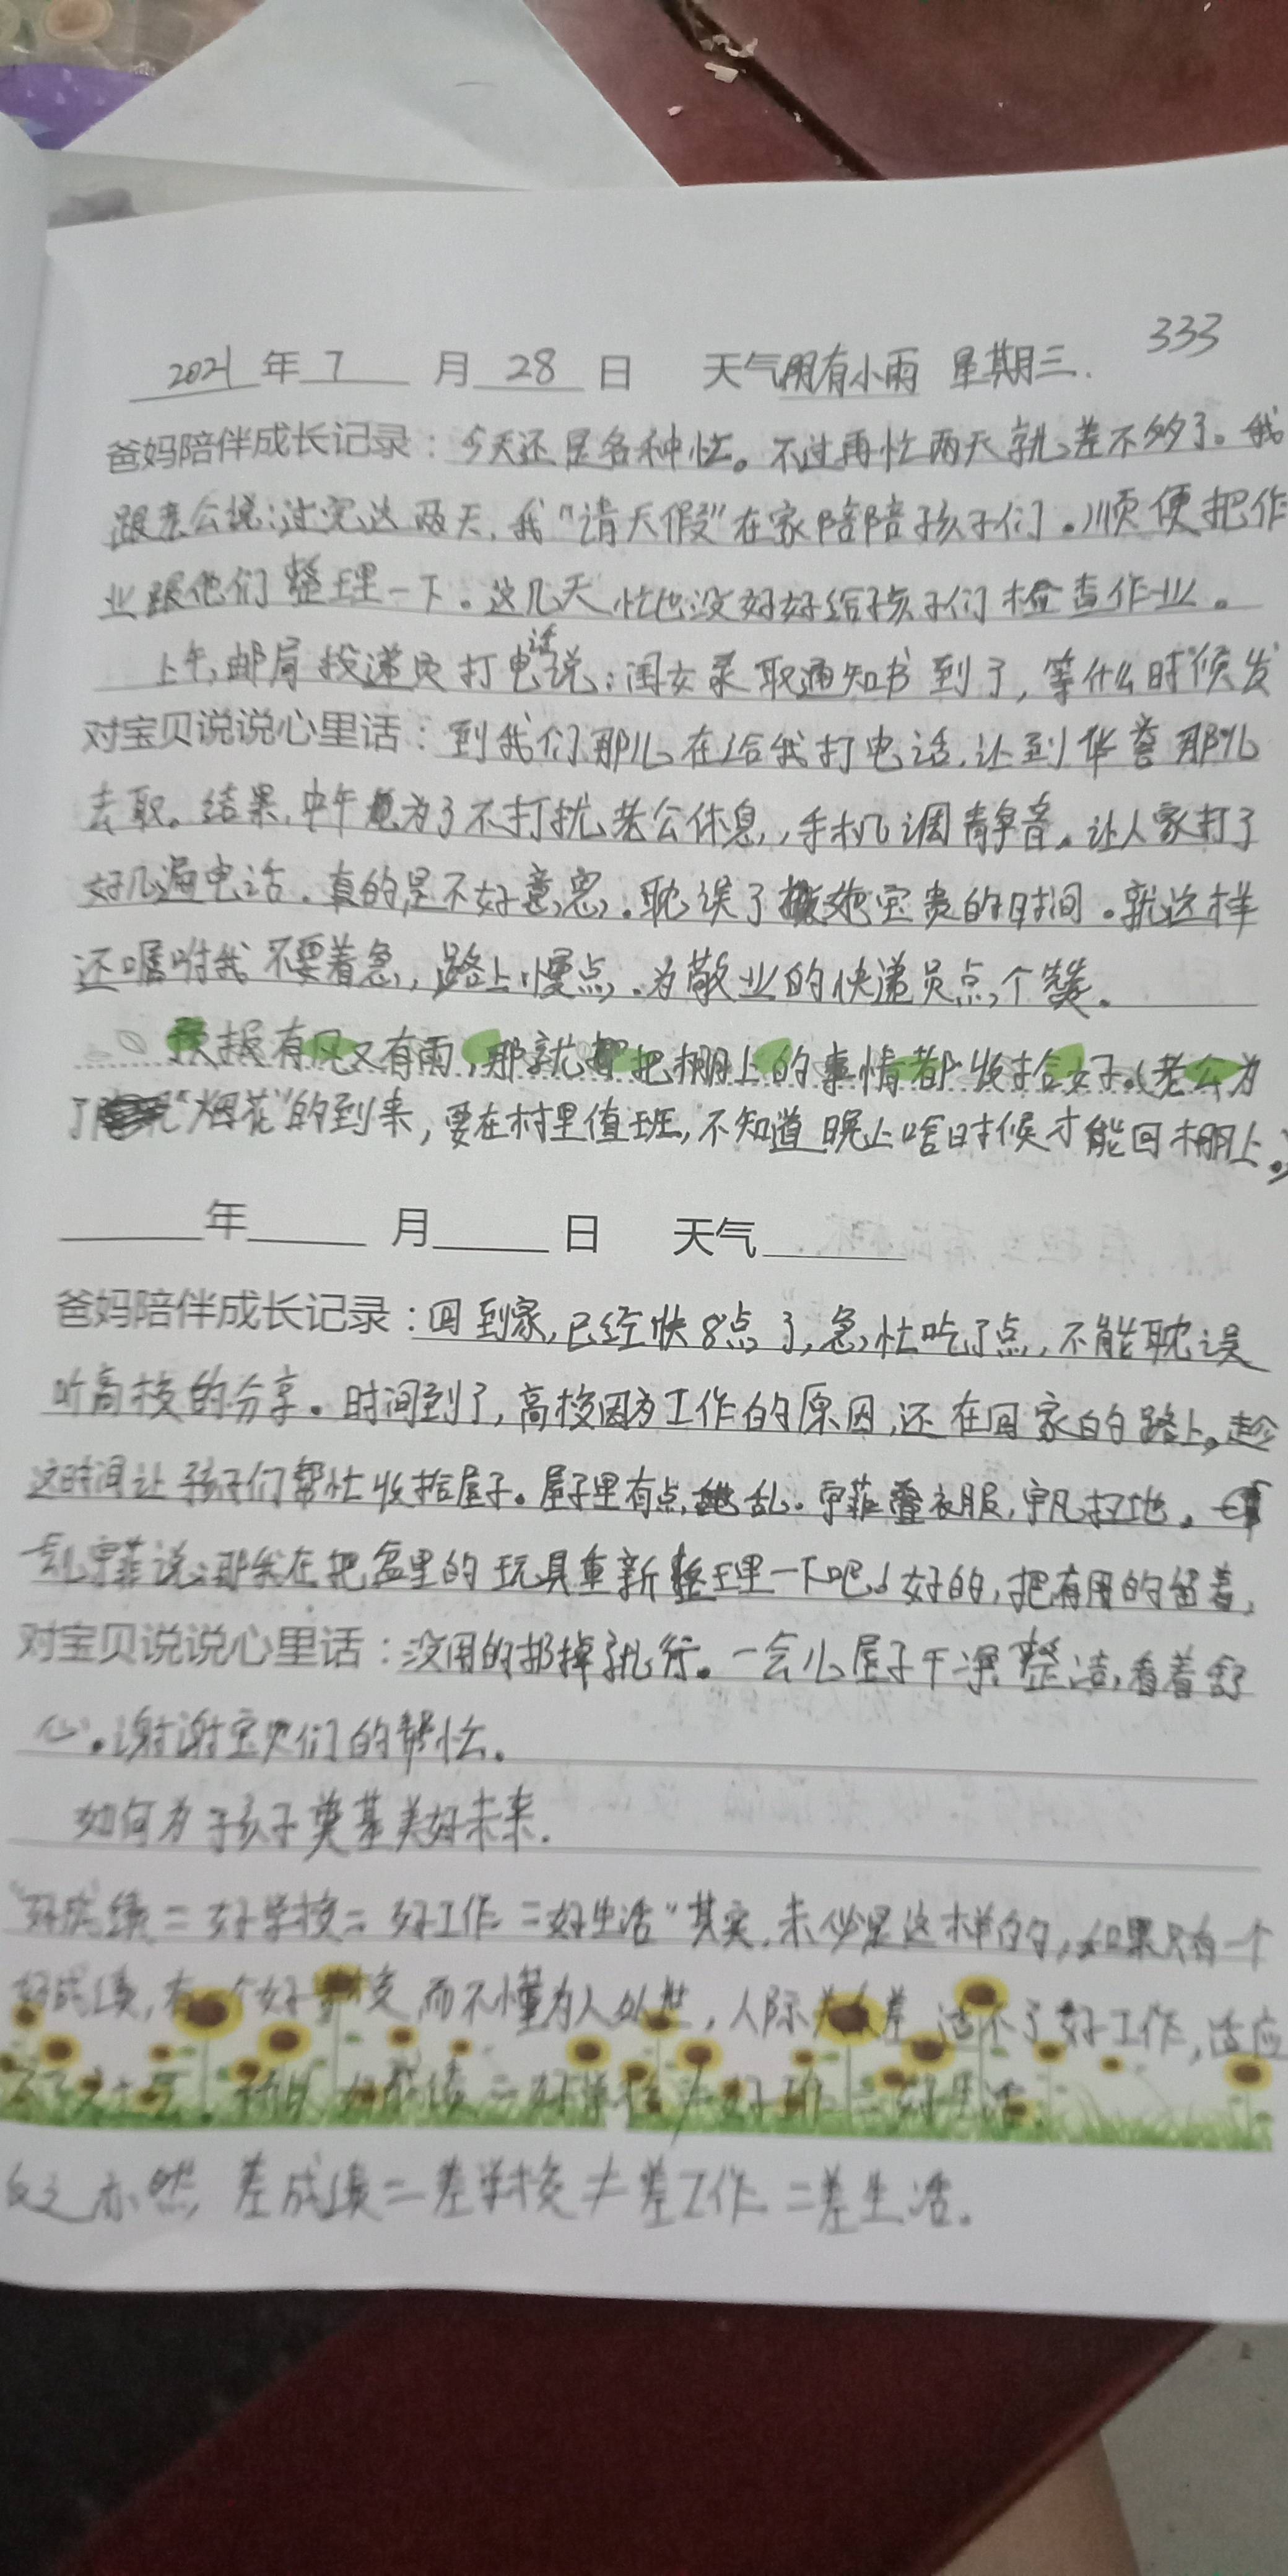 333
2021年7月28日 天气阴有小雨 星期三.
爸妈陪伴成长记录：今天还是各种忙。不过再忙两天就差不多了。我
跟老公说:过完这两天,我“请天假”在家陪陪孩子们。顺便把作
业跟他们整理一下。这几天忙也没好好给孩子们检查作业。
上午,邮局投递员打电话说:闺女录取通知书到了,等什么时候发
对宝贝说说心里话：到我们那儿在给我打电话,让到华誉那儿
去取。结果,中午为了不打扰老公休息,手机调静音。让人家打了
好几遍电话。真的是不好意思。耽误了她宝贵的时间。就这样
还嘱咐我不要着急,路上慢点,为敬业的快递员点个赞。
预报有风又有雨,那就把棚上的事情都收拾好。(老公为
了“烟花”的到来,要在村里值班,不知道晚上啥时候才能回棚上。)
年 月 日 天气
爸妈陪伴成长记录：回到家,已经快8点了,急忙吃了点,不能耽误
听高校的分享。时间到了,高校因为工作的原因,还在回家的路上。趁
这时间让孩子们帮忙收拾屋子。屋子里有点乱。宇菲叠衣服,宇凡扫地。
宇菲说:那我在把盆里的玩具重新整理一下吧!好的,把有用的留着,
对宝贝说说心里话：没用的扔掉就行。一会儿屋子干净整洁,看着舒
心。谢谢宝贝们的帮忙。
如何为孩子奠基美好未来.
“好成绩=好学校=好工作=好生活”其实,未必是这样的,如果只有一个
好成绩,有一个好学校而不懂为人处世,人际关系差 适不了好工作,适应
好成绩=好学校≠好工作=好生活.
反之亦然,差成绩=差学校≠差工作=差生活。